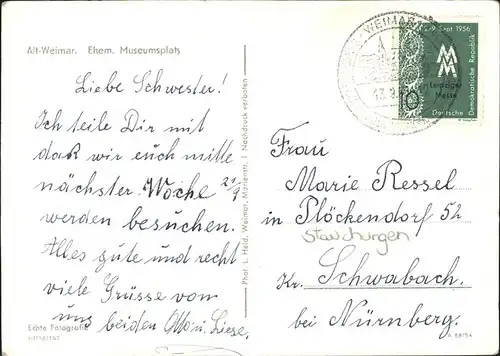 Alt-Weimar. Ehem. Museumsplatz
Liebe Schwester!
Ich teile Dir mit
daß wir euch mitte
nächster Woche
werden besuchen.
Alles gute und recht
viele Grüsse von
uns beiden Otto u. Liese.
Echte Fotografie
Phot. L. Held, Weimar, Marienstr. 1 Nachdruck verboten
WEIMAR
Sept 1956
MM
Leipziger
Messe
10
Deutsche Demokratische Republik
Frau
Marie Ressel
in Plöckendorf 52
Kr. Schwabach.
bei Nürnberg.